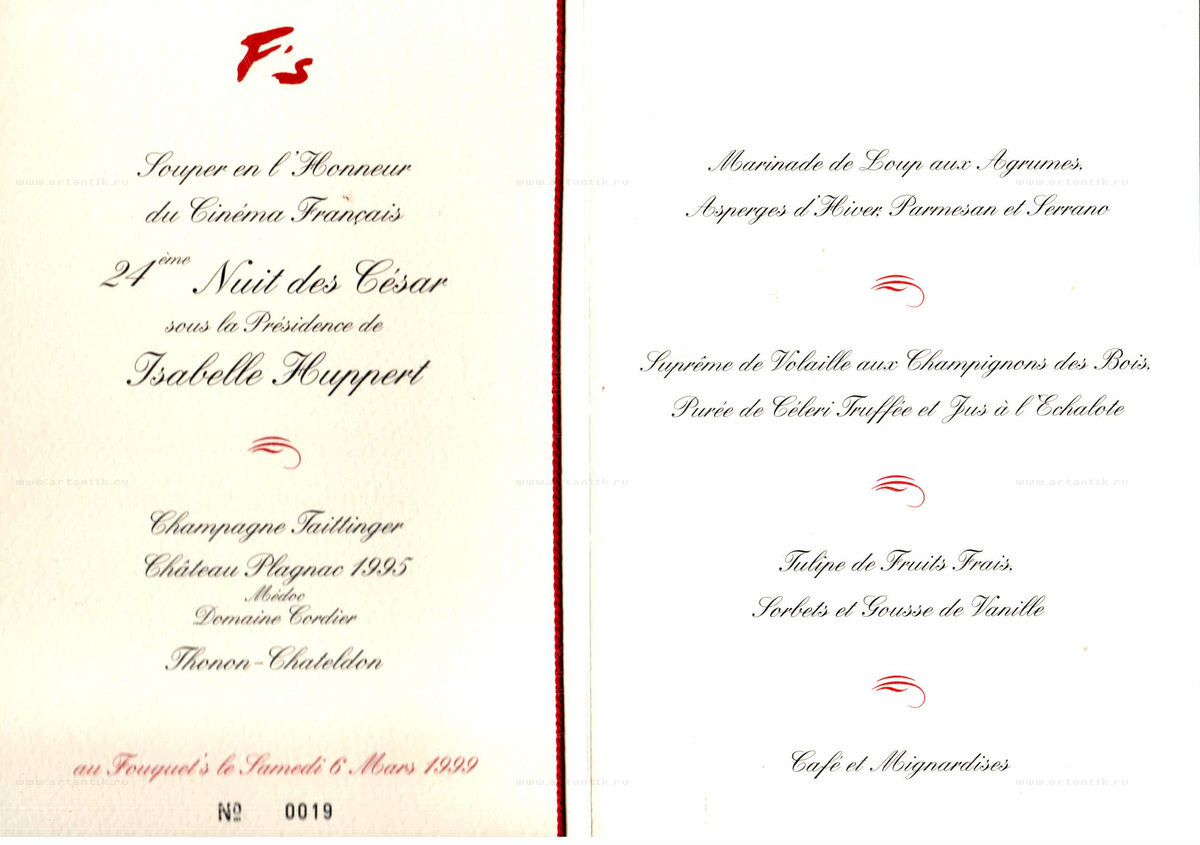 F's
Souper en l'Honneur
du Cinéma Français
24ème Nuit des César
sous la Présidence de
Isabelle Huppert
Champagne Taittinger
Château Plagnac 1995
Médoc
Domaine Cordier
Thonon-Chateldon
au Fouquet's le Samedi 6 Mars 1999
Nº 0019
Marinade de Loup aux Agrumes,
Asperges d'Hiver, Parmesan et Serrano
Suprême de Volaille aux Champignons des Bois,
Purée de Céleri Truffée et Jus à l'Echalote
Tulipe de Fruits Frais,
Sorbets et Gousse de Vanille
Café et Mignardises
www.artantik.ru
www.artantik.ru
www.artantik.ru
www.artantik.ru
www.artantik.ru
www.artantik.ru
www.artantik.ru
www.artantik.ru
www.artantik.ru